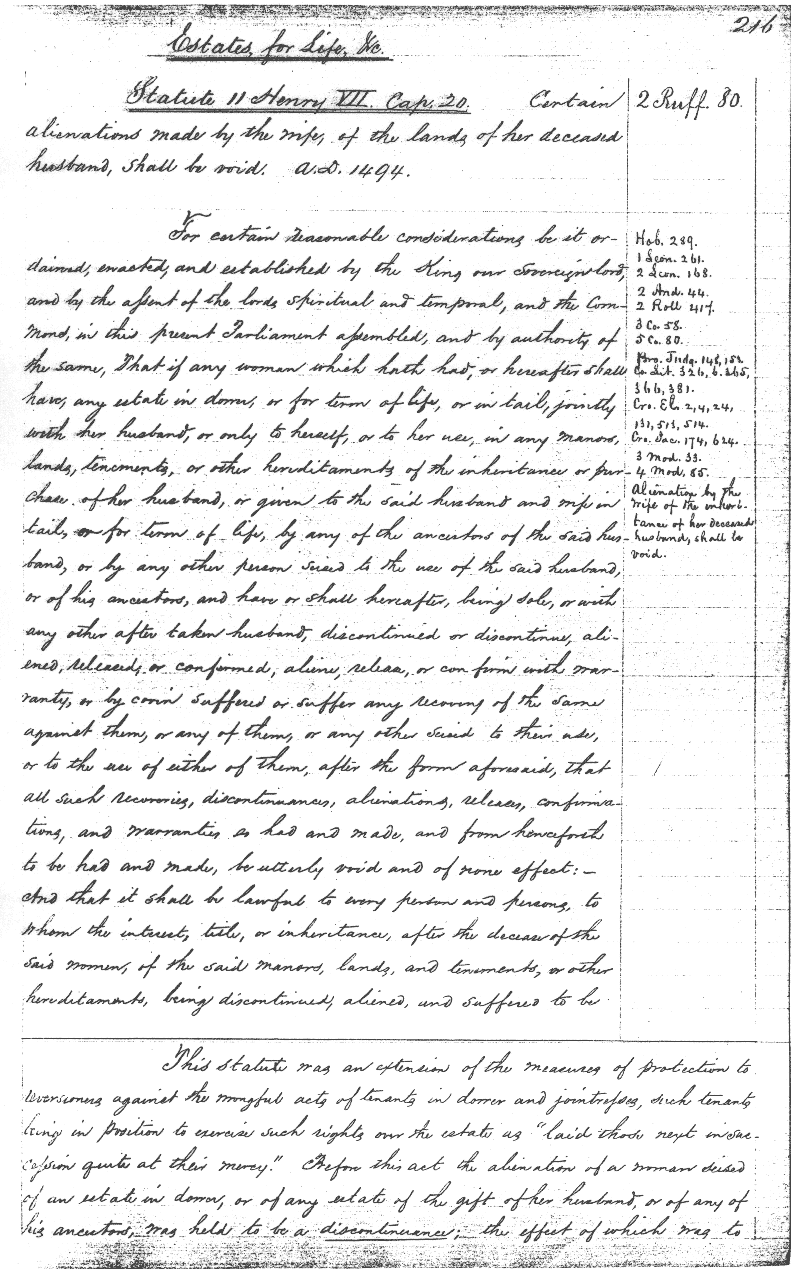 216
Estates, for Life, &c.
Statute 11 Henry VII. Cap. 20. Certain
alienations made by the wife, of the lands of her deceased
husband, shall be void. A.D. 1494.
2 Ruff. 80.
For certain reasonable considerations be it or-
dained, enacted, and established by the King our Sovereign lord,
and by the assent of the lords spiritual and temporal, and the Com-
mons, in this present Parliament assembled, and by authority of
the same, That if any woman which hath had, or hereafter shall
have, any estate in dower, or for term of life, or in tail, jointly
with her husband, or only to herself, or to her use, in any manors,
lands, tenements, or other hereditaments of the inheritance or pur-
chase of her husband, or given to the said husband and wife in
tail, or for term of life, by any of the ancestors of the said hus-
band, or by any other person seised to the use of the said husband,
or of his ancestors, and have or shall hereafter, being sole, or with
any other after taken husband, discontinued or discontinue, ali-
ened, released, or confirmed, aliene, release, or confirm with war-
ranty, or by covin suffered or suffer any recovery of the same
against them, or any of them, or any other seised to their use,
or to the use of either of them, after the form aforesaid, that
all such recoveries, discontinuances, alienations, releases, confirma-
tions, and warranties so had and made, and from henceforth
to be had and made, be utterly void and of none effect: –
And that it shall be lawful to every person and persons, to
whom the interest, title, or inheritance, after the decease of the
said women, of the said manors, lands, and tenements, or other
hereditaments, being discontinued, aliened, and suffered to be
Hob. 289.
1 Leon. 261.
2 Leon. 168.
2 And. 44.
2 Roll 417.
3 Co. 58.
5 Co. 80.
Bro. Judg. 148, 152.
Co. Lit. 326, b. 365,
366, 381.
Cro. El. 2, 4, 24,
131, 513, 514.
Cro. Jac. 174, 624.
3 Mod. 33.
4 Mod. 85.
Alienation by the
wife of the inheri-
tance of her deceased
husband, shall be
void.
This statute was an extension of the measures of protection to
reversioners against the wrongful acts of tenants in dower and jointresses, such tenants
being in position to exercise such rights over the estate as "laid those next in suc-
cession quite at their mercy." Before this act the alienation of a woman seised
of an estate in dower, or of any estate of the gift of her husband, or of any of
his ancestors, was held to be a discontinuance; the effect of which was to